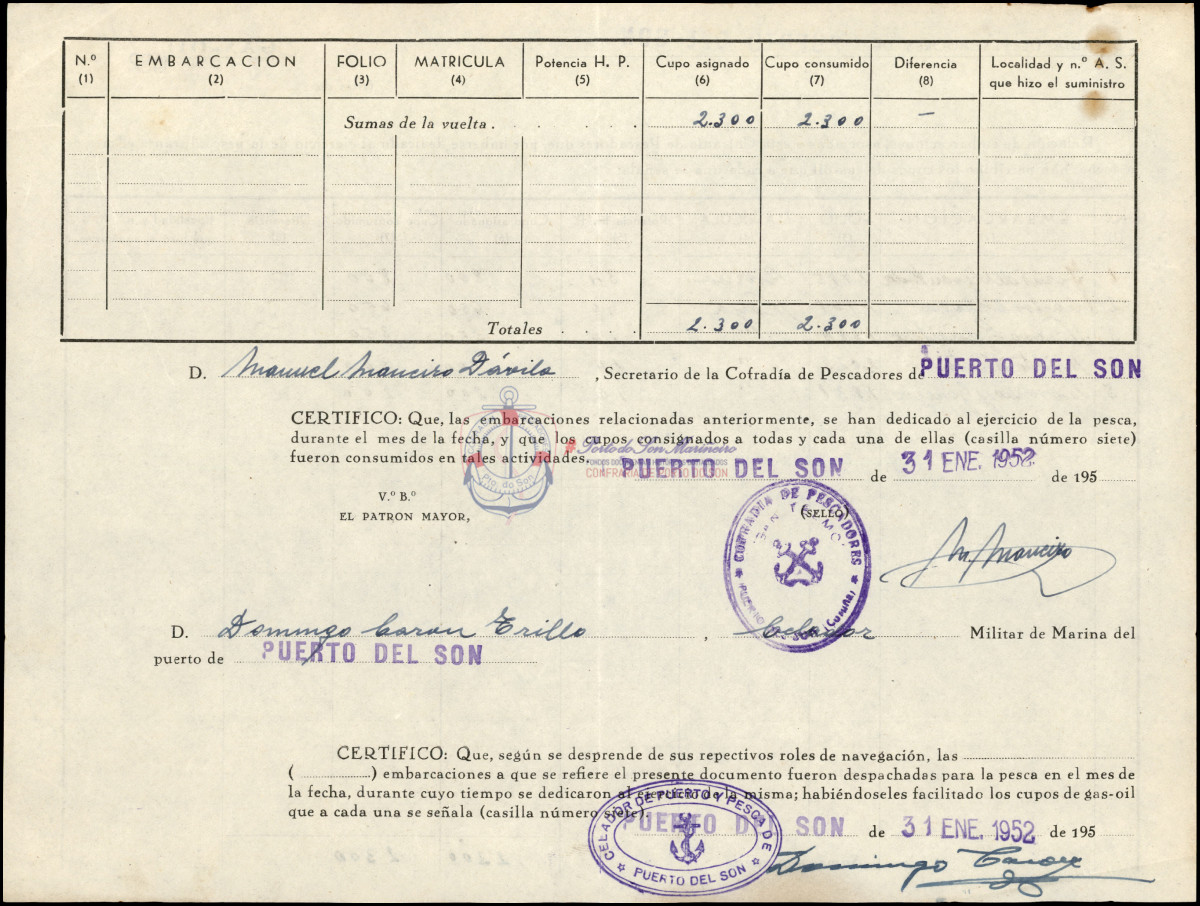 N.º EMBARCACION FOLIO MATRICULA Potencia H. P. Cupo asignado Cupo consumido Diferencia Localidad y n.º A. S.
(1) (2) (3) (4) (5) (6) (7) (8) que hizo el suministro
Sumas de la vuelta . . . . . 2.300 2.300 —
Totales . . . . 2.300 2.300
D. Manuel Maneiro Dávila , Secretario de la Cofradía de Pescadores de PUERTO DEL SON
CERTIFICO: Que, las embarcaciones relacionadas anteriormente, se han dedicado al ejercicio de la pesca,
durante el mes de la fecha, y que los cupos consignados a todas y cada una de ellas (casilla número siete)
fueron consumidos en tales actividades.
Porto do Son Marineiro
CONFRARÍA DE PORTO DO SON
Pto. do Son
PUERTO DEL SON de 31 ENE. 1952 de 195
V.º B.º
EL PATRON MAYOR,
(SELLO)
COFRADIA DE PESCADORES
SAN TELMO
PUERTO DEL SON (CORUÑA)
M. Maneiro
D. Domingo Caron Trillo , Celador Militar de Marina del
puerto de PUERTO DEL SON
CERTIFICO: Que, según se desprende de sus repectivos roles de navegación, las
( ) embarcaciones a que se refiere el presente documento fueron despachadas para la pesca en el mes de
la fecha, durante cuyo tiempo se dedicaron al ejercicio de la misma; habiéndoseles facilitado los cupos de gas-oil
que a cada una se señala (casilla número siete).
PUERTO DEL SON de 31 ENE. 1952 de 195
CELADOR DE PUERTO Y PESCA DE
PUERTO DEL SON
Domingo Caron